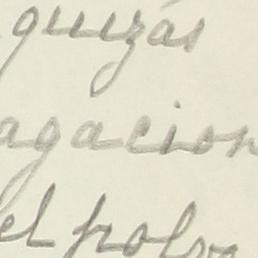 quizás
agacion
el polvo